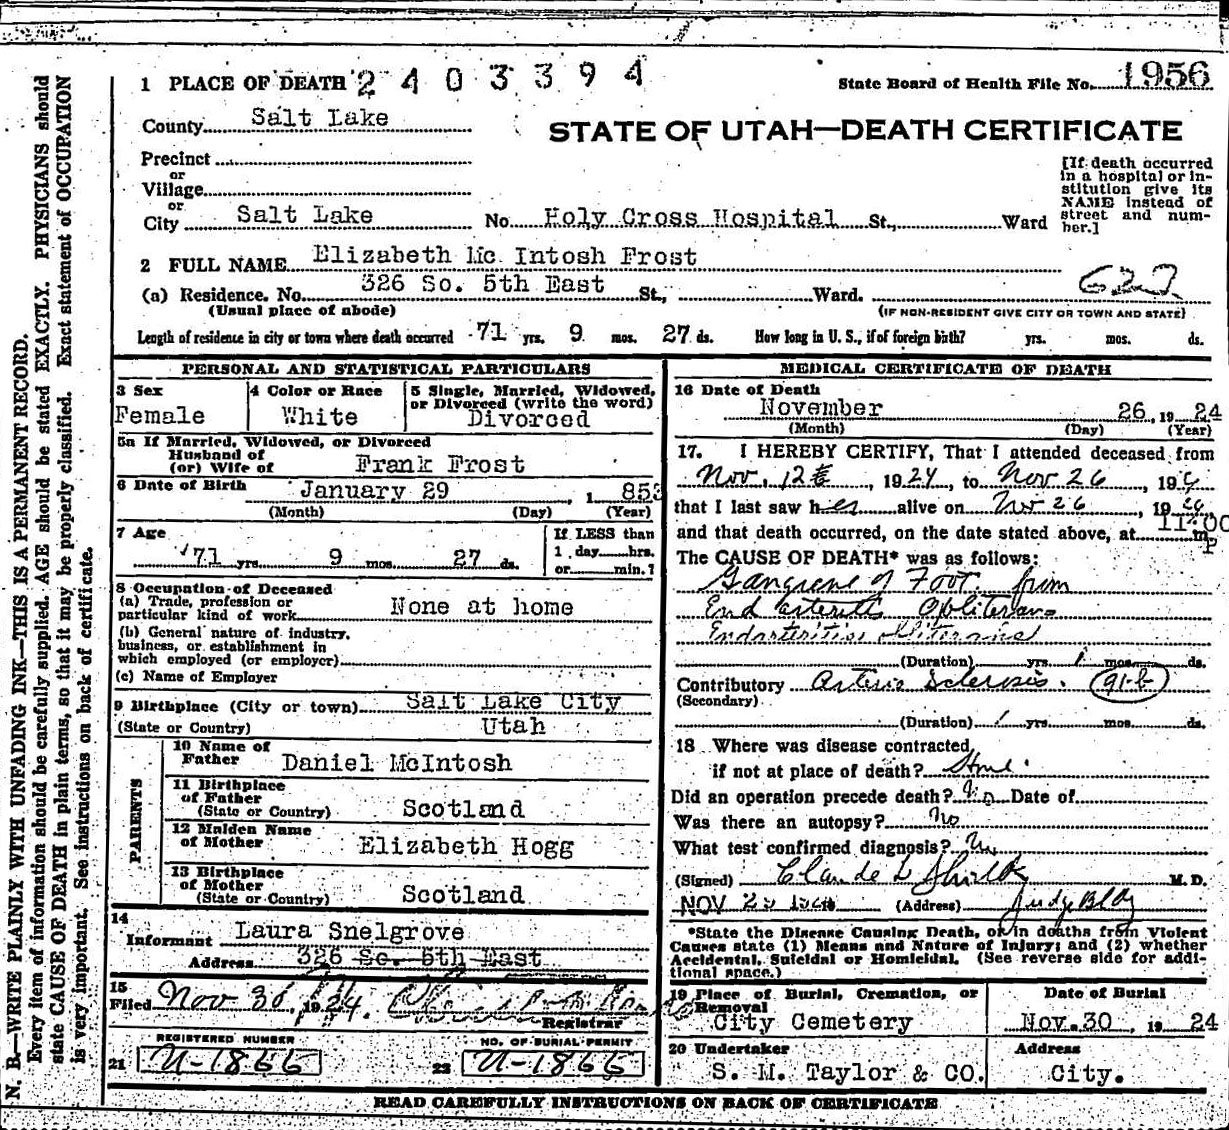 1 PLACE OF DEATH 2403394
State Board of Health File No. 1956
County Salt Lake
STATE OF UTAH—DEATH CERTIFICATE
Precinct
or
Village
or
City Salt Lake No. Holy Cross Hospital St., Ward
[If death occurred
in a hospital or in-
stitution give its
NAME instead of
street and num-
ber.]
2 FULL NAME Elizabeth Mc Intosh Frost
(a) Residence. No. 326 So. 5th East St., Ward.
(Usual place of abode) (IF NON-RESIDENT GIVE CITY OR TOWN AND STATE)
Length of residence in city or town where death occurred 71 yrs. 9 mos. 27 ds. How long in U. S., if of foreign birth? yrs. mos. ds.
PERSONAL AND STATISTICAL PARTICULARS
3 Sex
Female
4 Color or Race
White
5 Single, Married, Widowed,
or Divorced (write the word)
Divorced
5a If Married, Widowed, or Divorced
Husband of
(or) Wife of Frank Frost
6 Date of Birth January 29, 1853
(Month) (Day) (Year)
7 Age
71 yrs. 9 mos. 27 ds.
If LESS than
1 day hrs.
or min.?
8 Occupation of Deceased
(a) Trade, profession or
particular kind of work None at home
(b) General nature of industry,
business, or establishment in
which employed (or employer)
(c) Name of Employer
9 Birthplace (City or town) Salt Lake City
(State or Country) Utah
PARENTS
10 Name of
Father Daniel McIntosh
11 Birthplace
of Father
(State or Country) Scotland
12 Maiden Name
of Mother Elizabeth Hogg
13 Birthplace
of Mother
(State or Country) Scotland
14
Informant Laura Snelgrove
Address 326 So. 5th East
15
Filed Nov 30, 1924.
Registrar
REGISTERED NUMBER
21
NO. OF BURIAL PERMIT
22
MEDICAL CERTIFICATE OF DEATH
16 Date of Death
November 26, 1924
(Month) (Day) (Year)
17. I HEREBY CERTIFY, That I attended deceased from
Nov. 12th, 1924, to Nov 26, 192
that I last saw her alive on Nov 26, 19
and that death occurred, on the date stated above, at 11:00 P m.
The CAUSE OF DEATH* was as follows:
Gangrene of Foot from
End arteritis Obliterans
Endarteritis obliterans
(Duration) yrs. 1 mos. ds.
Contributory Arterio Sclerosis. 91-b
(Secondary)
(Duration) yrs. mos. ds.
18 Where was disease contracted,
if not at place of death? Home
Did an operation precede death? No Date of
Was there an autopsy? No
What test confirmed diagnosis?
(Signed) Claude L M.D.
NOV (Address) Judge Bldg
*State the Disease Causing Death, or in deaths from Violent
Causes state (1) Means and Nature of Injury; and (2) whether
Accidental, Suicidal or Homicidal. (See reverse side for addi-
tional space.)
19 Place of Burial, Cremation, or
Removal
City Cemetery
Date of Burial
Nov. 30, 1924
20 Undertaker
S. M. Taylor & CO.
Address
City.
READ CAREFULLY INSTRUCTIONS ON BACK OF CERTIFICATE
N. B.—WRITE PLAINLY WITH UNFADING INK—THIS IS A PERMANENT RECORD.
Every item of information should be carefully supplied. AGE should be stated EXACTLY. PHYSICIANS should
state CAUSE OF DEATH in plain terms, so that it may be properly classified. Exact statement of OCCUPATION
is very important. See instructions on back of certificate.